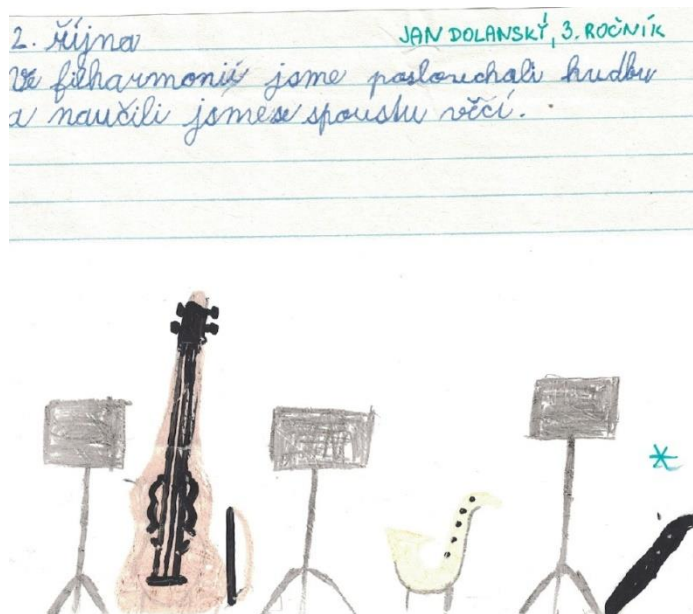 2. října
JAN DOLANSKÝ, 3. ROČNÍK
Ve filharmonii jsme poslouchali hudbu
a naučili jsmese spoustu věcí.